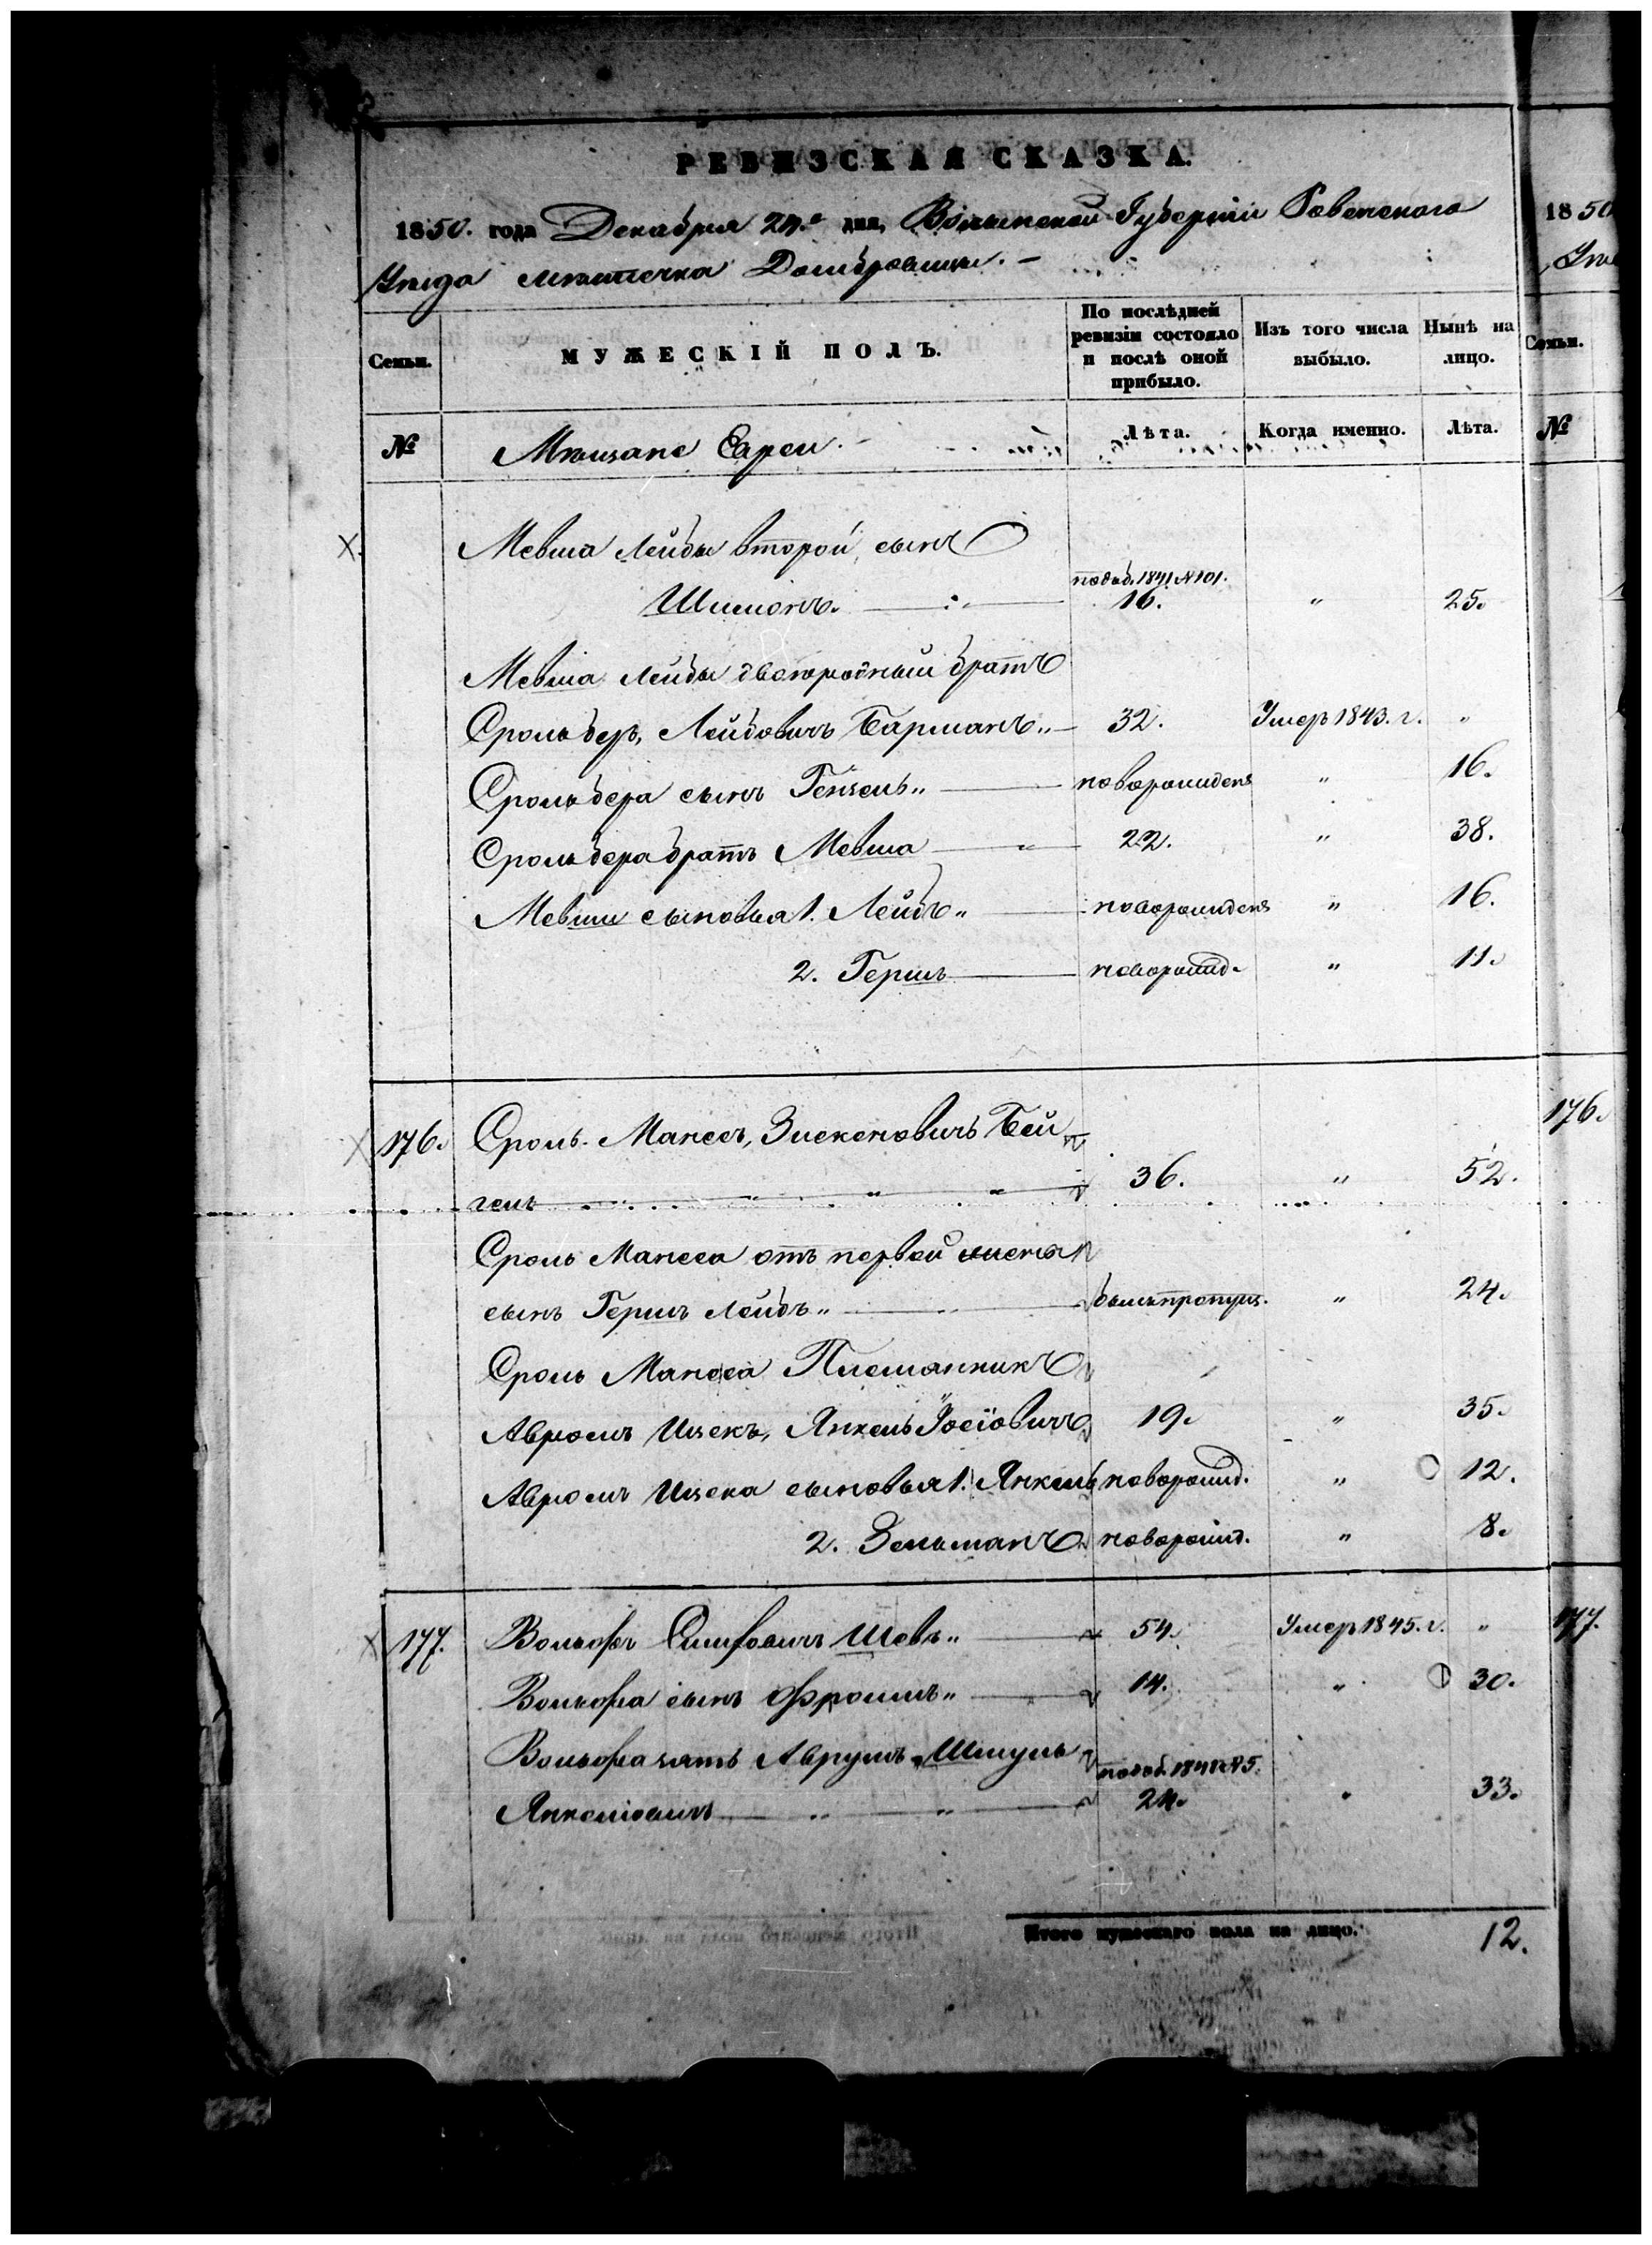 РЕВИЗСКАЯ СКАЗКА.
1850. года Декабря 24.го дня, Волынской Губерніи Ровенского
Уѣзда мѣстечка Домбровицы. —
Семьи.
МУЖЕСКІЙ ПОЛЪ.
По послѣдней ревизіи состояло и послѣ оной прибыло.
Изъ того числа выбыло.
Нынѣ на лицо.
№ Мѣщане Евреи. Лѣта. Когда именно. Лѣта.
Мевша Лейбы второй сынъ
Шимонъ. 1841 №101. 16. " 25.
Мевша Лейбы двоюродный братъ
Срольберъ, Лейбовичъ Барманъ " 32. Умеръ 1843. г. "
Срольбера сынъ Гензель " новорожденъ " 16.
Срольбера братъ Мевша " 22. " 38.
Мевши сыновья 1. Лейбъ " новорожденъ " 16.
2. Гершъ новорожд. " 11.
176. Сроль Манесъ, Зискеновичъ Бей
гель " 36. " 52.
Сроль Манеса отъ первой жены
сынъ Гершъ Лейбъ " былъ пропущ. " 24.
Сроль Манеса Племянникъ
Авромъ Ицекъ, Янкель Іосіовичъ 19. " 35.
Авромъ Ицека сыновья 1. Янкель новорожд. " 12.
2. Зельманъ новорожд. " 8.
177. Вольфъ Шевъ " 54. Умеръ 1845. г. "
Вольфа сынъ Фроимъ " 14. " 30.
Вольфа зять Аврумъ Шмуль
Янкеліовичъ " 1841 №5. 24. " 33.
Итого мужескаго пола на лицо. 12.
1850
№
Семьи.
176.
177.